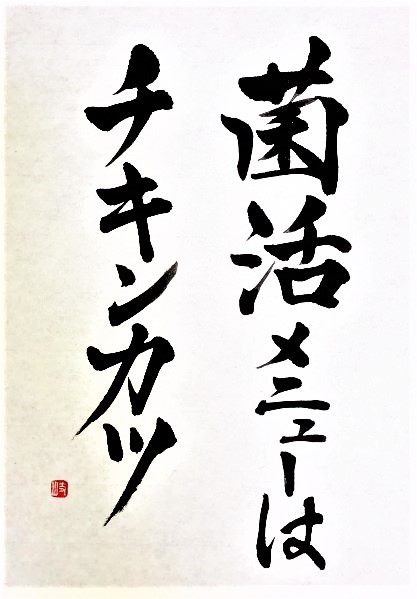 菌活メニューは
チキンカツ